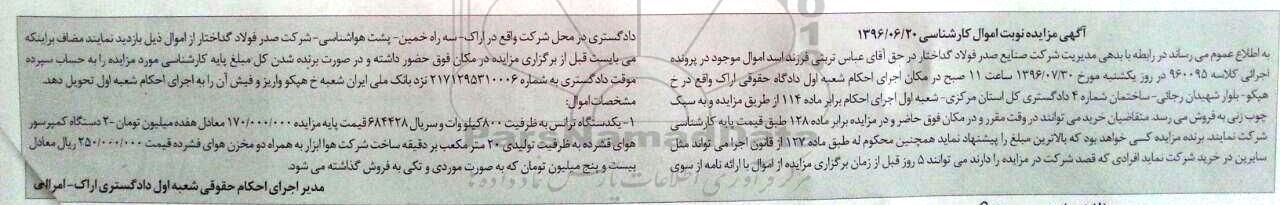 آگهی مزایده نوبت اموال کارشناسی ۱۳۹۶/۰۶/۲۰
به اطلاع عموم می رساند در رابطه با بدهی مدیریت شرکت صنایع صدر فولاد گداختار در حق آقای عباس تربتی فرزند اسد اموال موجود در پرونده
اجرائی کلاسه ۹۶۰۰۹۵ در روز یکشنبه مورخ ۱۳۹۶/۰۷/۳۰ ساعت ۱۱ صبح در مکان اجرای احکام شعبه اول دادگاه حقوقی اراک واقع در خ
هپکو- بلوار شهیدان رجائی- ساختمان شماره ۴ دادگستری کل استان مرکزی- شعبه اول اجرای احکام برابر ماده ۱۱۴ از طریق مزایده و به سبک
چوب زنی به فروش می رسد. متقاضیان خرید می توانند در وقت مقرر و در مکان فوق حاضر و در مزایده برابر ماده ۱۲۸ طبق قیمت پایه کارشناسی
شرکت نمایند. برنده مزایده کسی خواهد بود که بالاترین مبلغ را پیشنهاد نماید همچنین محکوم له طبق ماده ۱۲۷ از قانون اجرا می تواند مثل
سایرین در خرید شرکت نماید افرادی که قصد شرکت در مزایده را دارند می توانند ۵ روز قبل از زمان برگزاری مزایده از اموال با ارائه نامه از سوی
دادگستری در محل شرکت واقع در اراک- سه راه خمین- پشت هواشناسی- شرکت صدر فولاد گداختار از اموال ذیل بازدید نمایند مضاف براینکه
می بایست قبل از برگزاری مزایده در مکان فوق حضور داشته و در صورت برنده شدن کل مبلغ پایه کارشناسی مورد مزایده را به حساب سپرده
موقت دادگستری به شماره ۲۱۷۱۲۹۵۳۱۰۰۰۶ نزد بانک ملی ایران شعبه خ هپکو واریز و فیش آن را به اجرای احکام شعبه اول تحویل دهد.
مشخصات اموال:
۱- یکدستگاه ترانس به ظرفیت ۸۰۰ کیلو وات و سریال ۶۸۴۴۲۸ قیمت پایه مزایده ۱۷۰/۰۰۰/۰۰۰ معادل هفده میلیون تومان ۲- دستگاه کمپرسور
هوای فشرده به ظرفیت تولیدی ۲۰ متر مکعب بر دقیقه ساخت شرکت هوا ابزار به همراه دو مخزن هوای فشرده قیمت ۲۵۰/۰۰۰/۰۰۰ ریال معادل
بیست و پنج میلیون تومان که به صورت موردی و تکی به فروش گذاشته می شود.
مدیر اجرای احکام حقوقی شعبه اول دادگستری اراک- امرالی
ParsNamadData
مرکز فرآوری اطلاعات پارس نماد داده ها